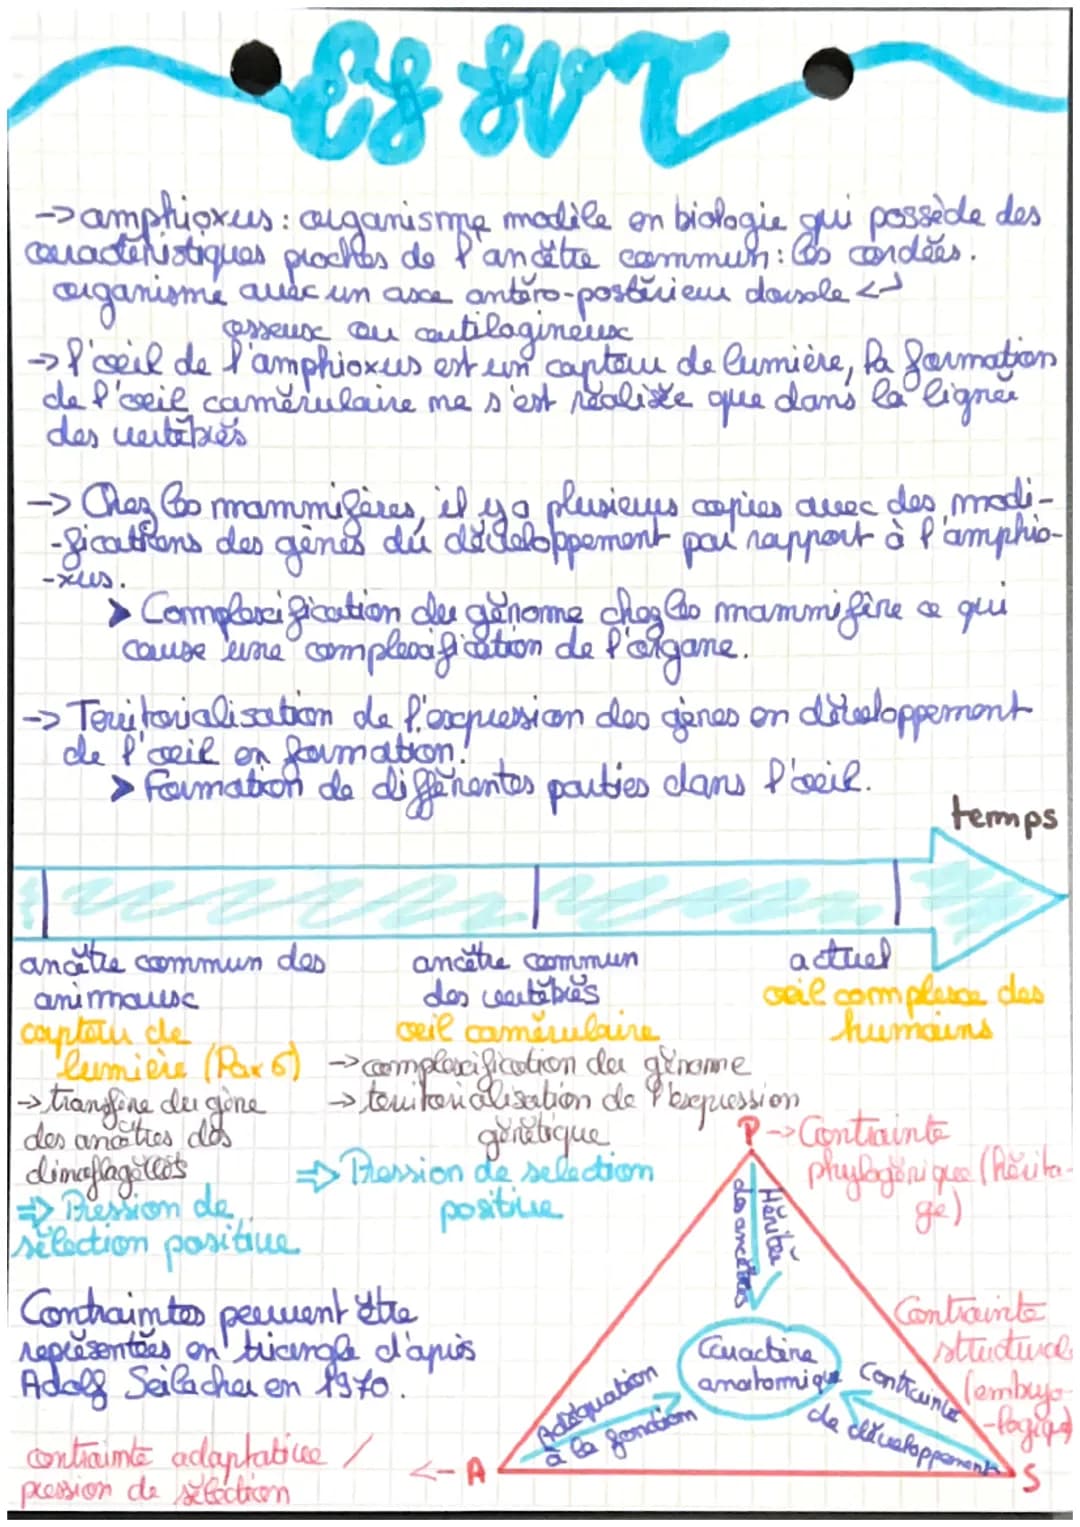 ES SVT
-> amphioxus : organisme modèle en biologie qui possède des
caractéristiques proches de l'ancêtre commun : les cordées.
organisme avec un axe antéro-postérieur dorsale <-
osseux ou cartilagineux
-> l'oeil de l'amphioxus est un capteur de lumière, la formation
de l'oeil camérulaire ne s'est réalisée que dans la lignée
des vertébrés
-> Chez les mammifères, il y a plusieurs copies avec des modi-
-fications des gènes du développement par rapport à l'amphio-
-xus.
> Complexification du génome chez les mammifère ce qui
cause une complexification de l'organe.
-> Territorialisation de l'expression des gènes en développement
de l'oeil en formation.
> Formation de différentes parties dans l'oeil.
temps
ancêtre commun des
animaux
capteur de
lumière (Pax 6)
-> transfère du gène
des ancêtres des
dinoflagellés
=> Pression de
sélection positive
ancêtre commun
des vertébrés
oeil camérulaire
-> complexification du génome
-> territorialisation de l'expression
génétique
=> Pression de selection
positive
actuel
oeil complexe des
humains
P -> Contrainte
phylogénique (hérita-
ge)
Héritée
des ancêtres
Contraintes peuvent être
représentées en triangle d'après
Adolf Seilacher en 1970.
Contrainte
structural
(embryo-
-logique)
Caractère
anatomique
Adéquation
à la fonction
Contrainte
de développement
contrainte adaptative /
pression de sélection
<- A
S